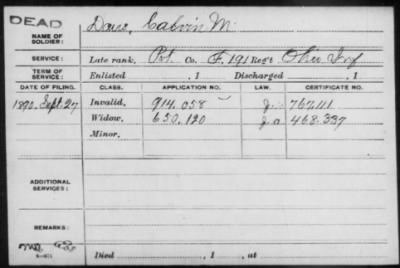 DEAD
NAME OF SOLDIER: Calvin M.
SERVICE: Late rank, Pvt. Co. F, 191 Reg't Ohio Inf
TERM OF SERVICE: Enlisted , 1 Discharged , 1
DATE OF FILING. CLASS. APPLICATION NO. LAW. CERTIFICATE NO.
1890. Sept. 27 Invalid. 914.058 767.111
Widow. 650.120 468.337
Minor.
ADDITIONAL SERVICES:
REMARKS:
Died , 1 , at